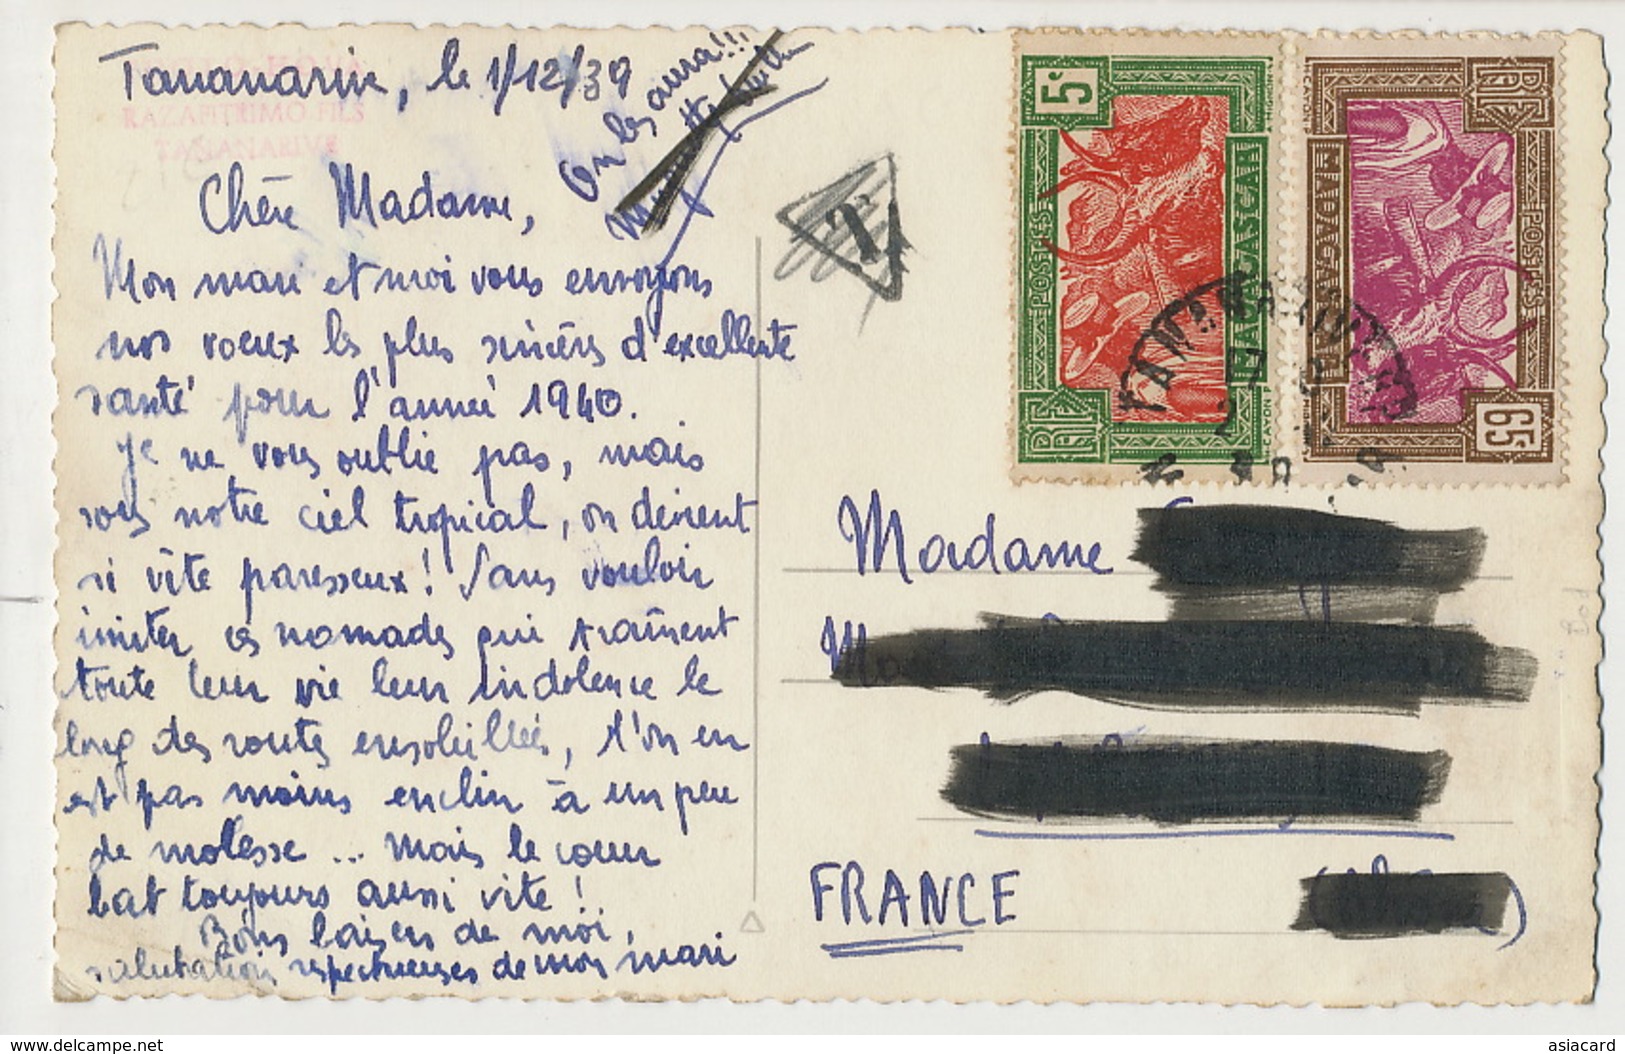 Tananarive, le 1/12/39
HOVA
RAZAFITRIMO FILS
TANANARIVE
On les aura!!!
Chère Madame,
Mon mari et moi vous envoyons
nos voeux les plus sincères d'excellente
santé pour l'année 1940.
Je ne vous oublie pas, mais
sous notre ciel tropical, on devient
si vite paresseux! Sans vouloir
imiter ces nomades qui traînent
toute leur vie leur indolence le
long des routes ensoleillées, l'on en
est pas moins enclin à un peu
de molesse ... Mais le coeur
bat toujours aussi vite!
Bons baisers de moi,
salutations respectueuses de mon mari
T
5c
RF
POSTES
MADAGASCAR
65c
RF
POSTES
MADAGASCAR
Madame
FRANCE
www.delcampe.net
asiacard